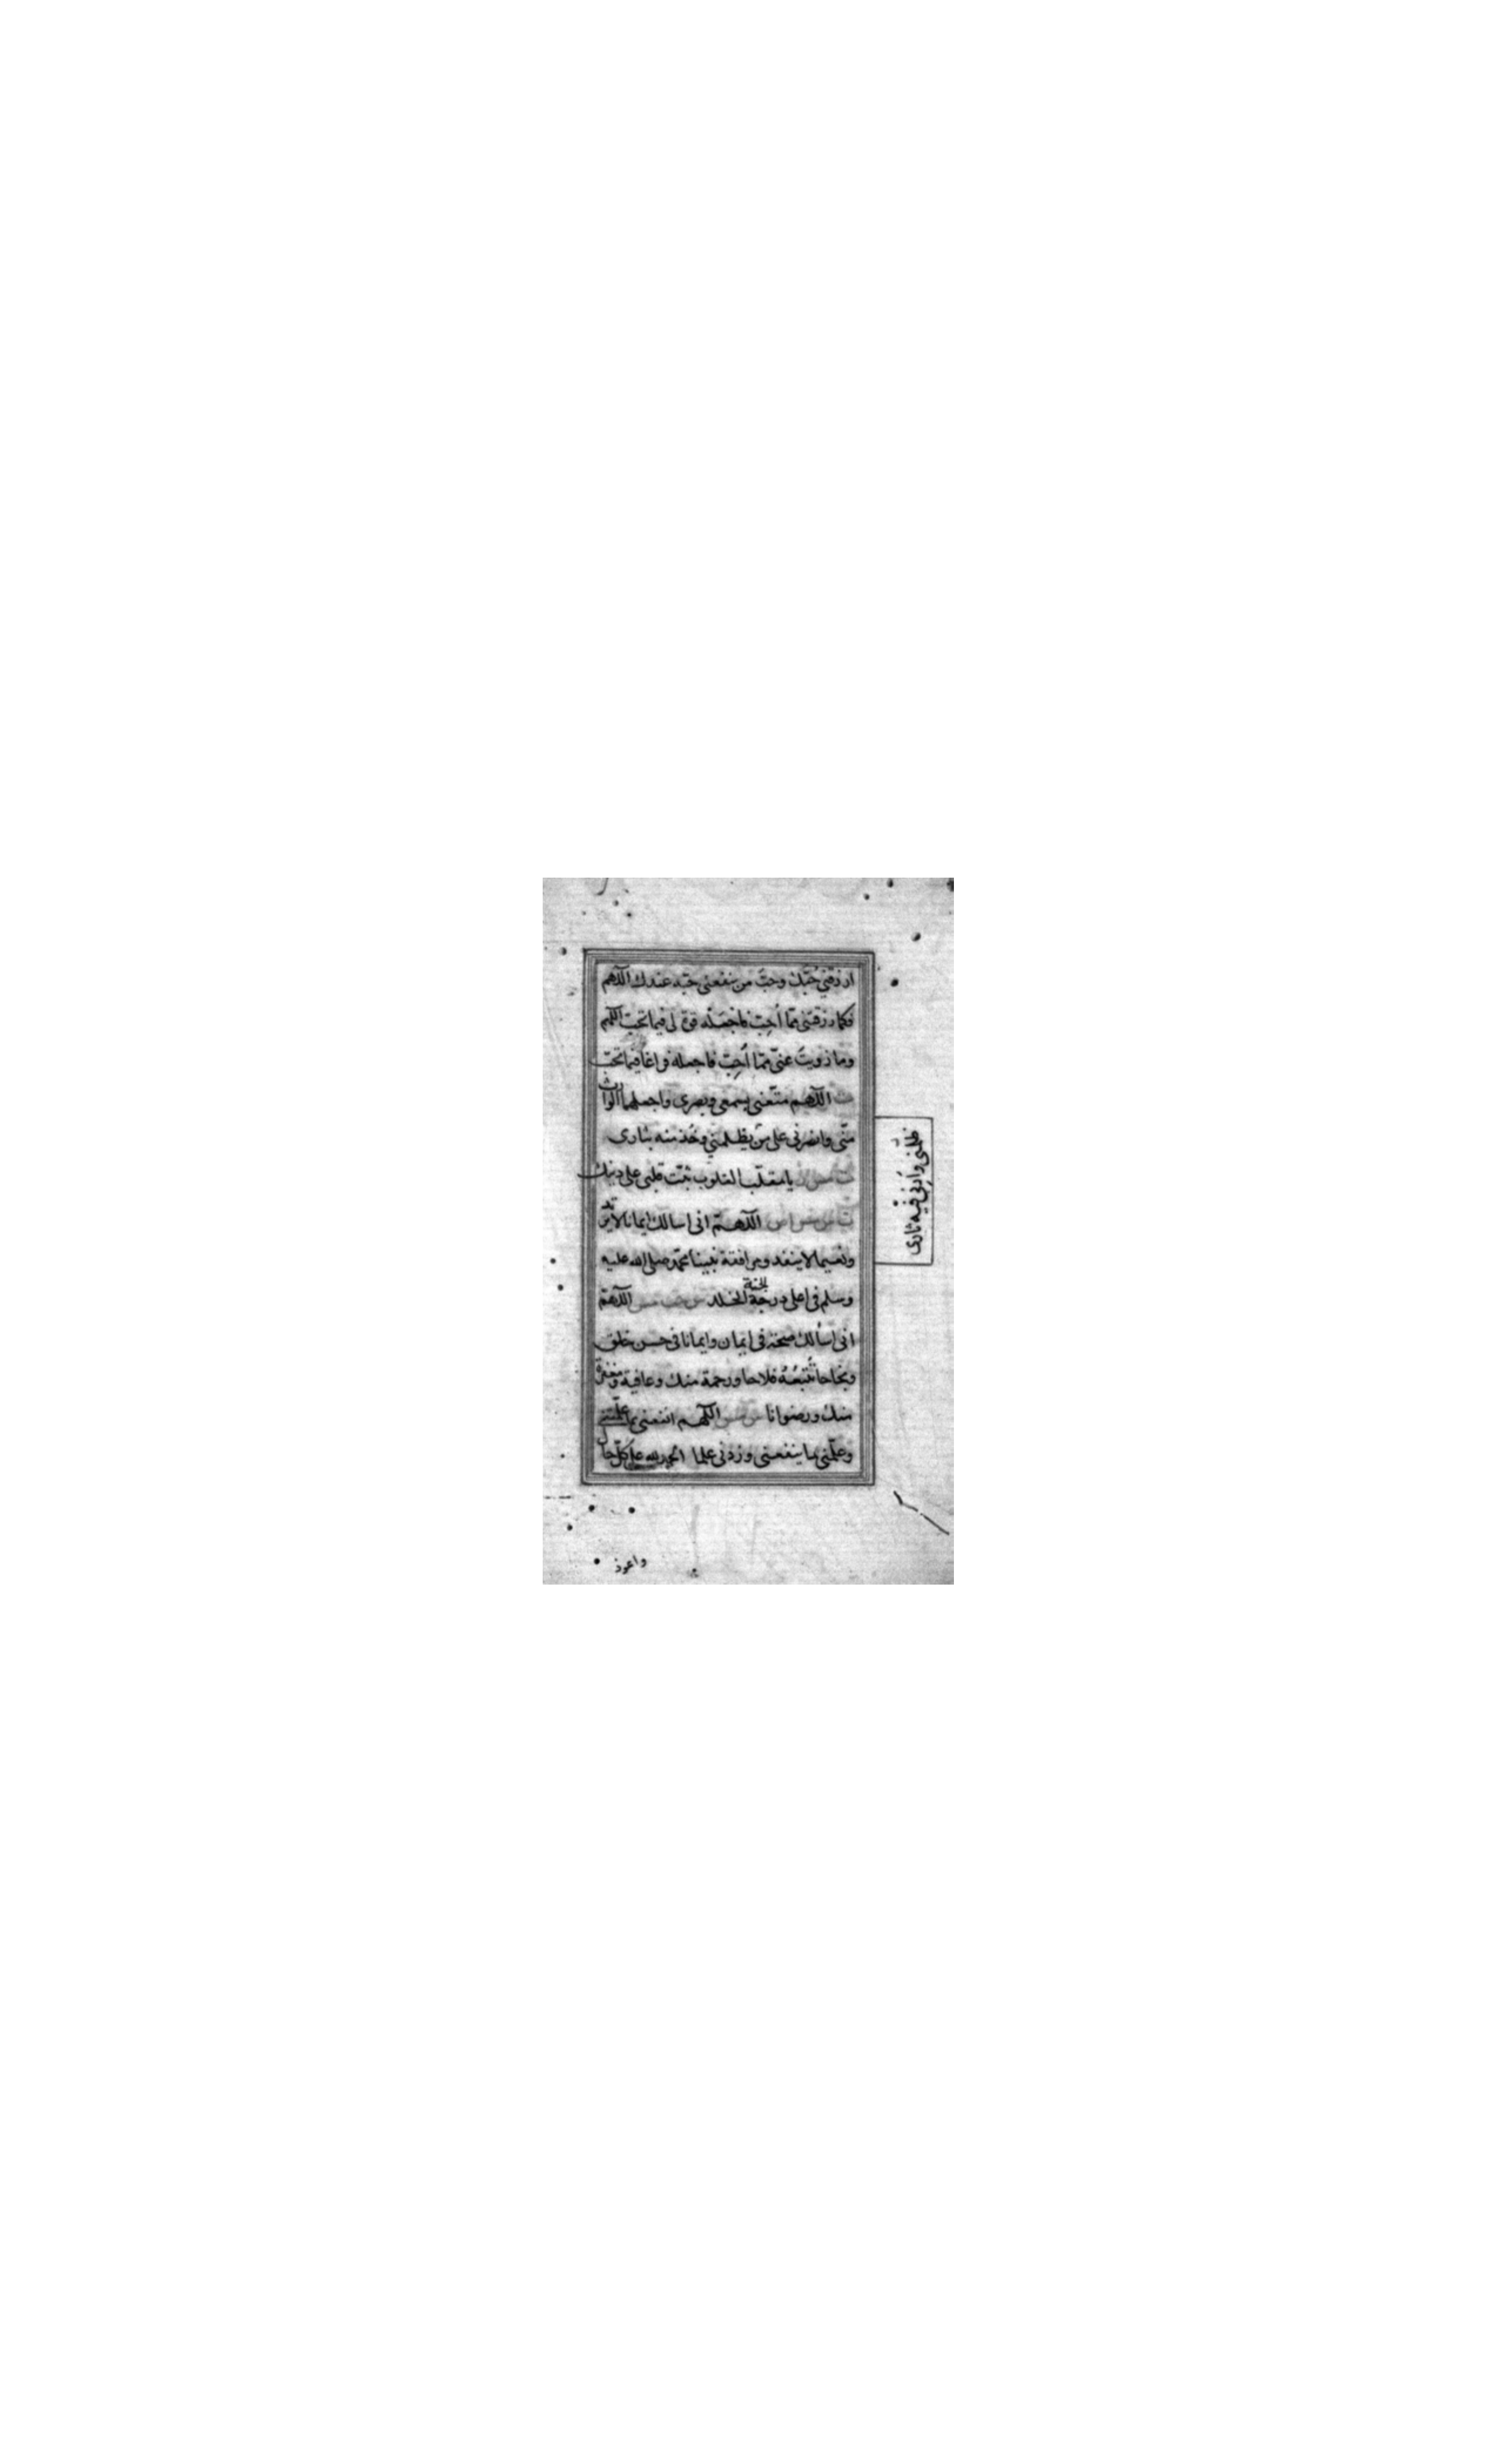 ارزقني حُبّك وحبَّ من ينفعنى حبّه عندك اللهم
فكما رزقتنى ممّا أُحِبّ فاجْعَلْه قوة لى فيما تحبّ اللهم
وما زويتَ عنىّ ممّا أُحِبّ فاجعله فراغا فيما تحبّ
ت اللهم متّعنى بسمعى وبصرى واجعلهما الوارث
منّى وانصرنى على منْ يظلمني وخُذ منه بثارى
يا مقلّب القلوب ثبّت قلبى على دينك
اللهمّ انى اسالك ايمانا لا يرتد
ونعيما لا ينفد ومرافقة نبينا محمّد صلى الله عليه
وسلم فى اعلى درجة الجنة الخلد اللهمّ
انى اسألك صحة فى ايمان وايمانا فى حسن خلق
ونجاحا تُتْبعُهُ فلاحا ورحمة منك وعافية ومغفرة
منك ورضوانا اللهم انفعنى بما علّمتنى
وعلّمنى ما ينفعنى وزدنى علما الحمد لله على كلّ حال
ظلمنى وأرنِى فيه ثارى
واعوذ